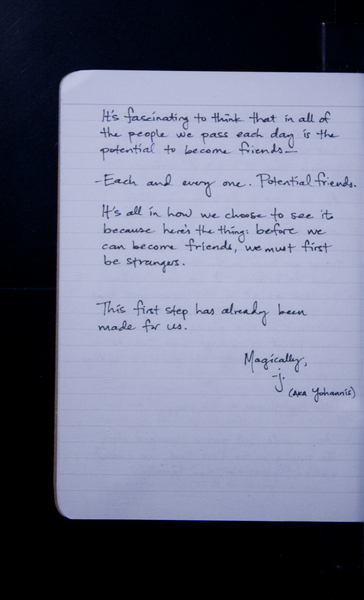 It's fascinating to think that in all of
the people we pass each day is the
potential to become friends—
-Each and every one. Potential friends.
It's all in how we choose to see it
because here's the thing: before we
can become friends, we must first
be strangers.
This first step has already been
made for us.
Magically,
-j.
(AKA Yohannis)